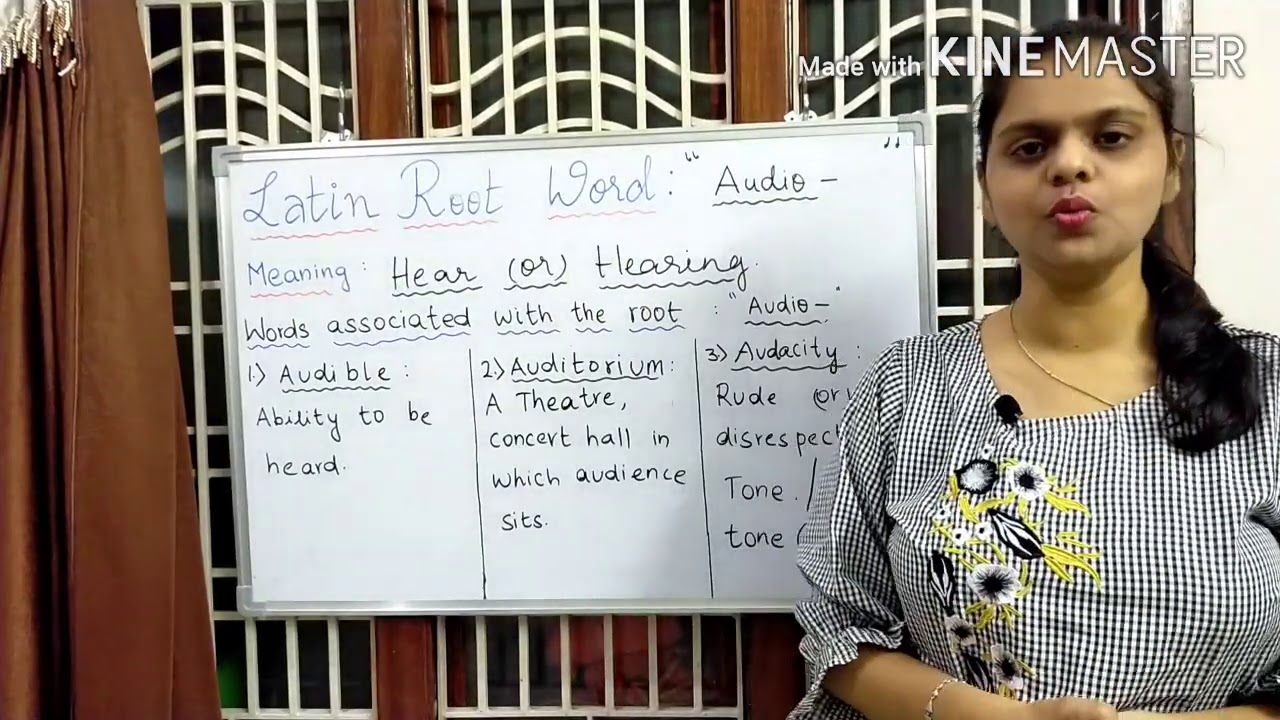 Made with KINEMASTER
Latin Root Word : "Audio - "
Meaning : Hear (or) Hearing.
Words associated with the root : "Audio - "
1.) Audible :
Ability to be
heard.
2.) Auditorium :
A Theatre,
concert hall in
which audience
sits.
3.) Audacity :
Rude (or)
disrespect
Tone. /
tone (